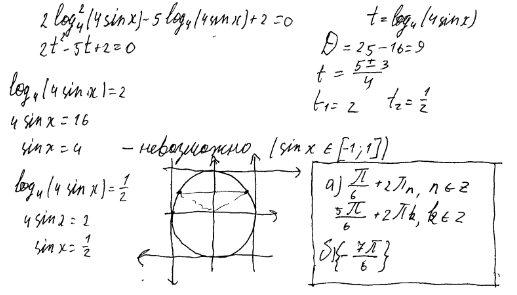 2log₄²(4sinx)-5log₄(4sinx)+2=0
2t²-5t+2=0
t=log₄(4sinx)
D=25-16=9
t=(5±3)/4
t₁=2 t₂=1/2
log₄(4sinx)=2
4sinx=16
sinx=4 - невозможно (sinx∈[-1;1])
log₄(4sinx)=1/2
4sinx=2
sinx=1/2
а) π/6+2πn, n∈z
5π/6+2πk, k∈z
б) {-7π/6}